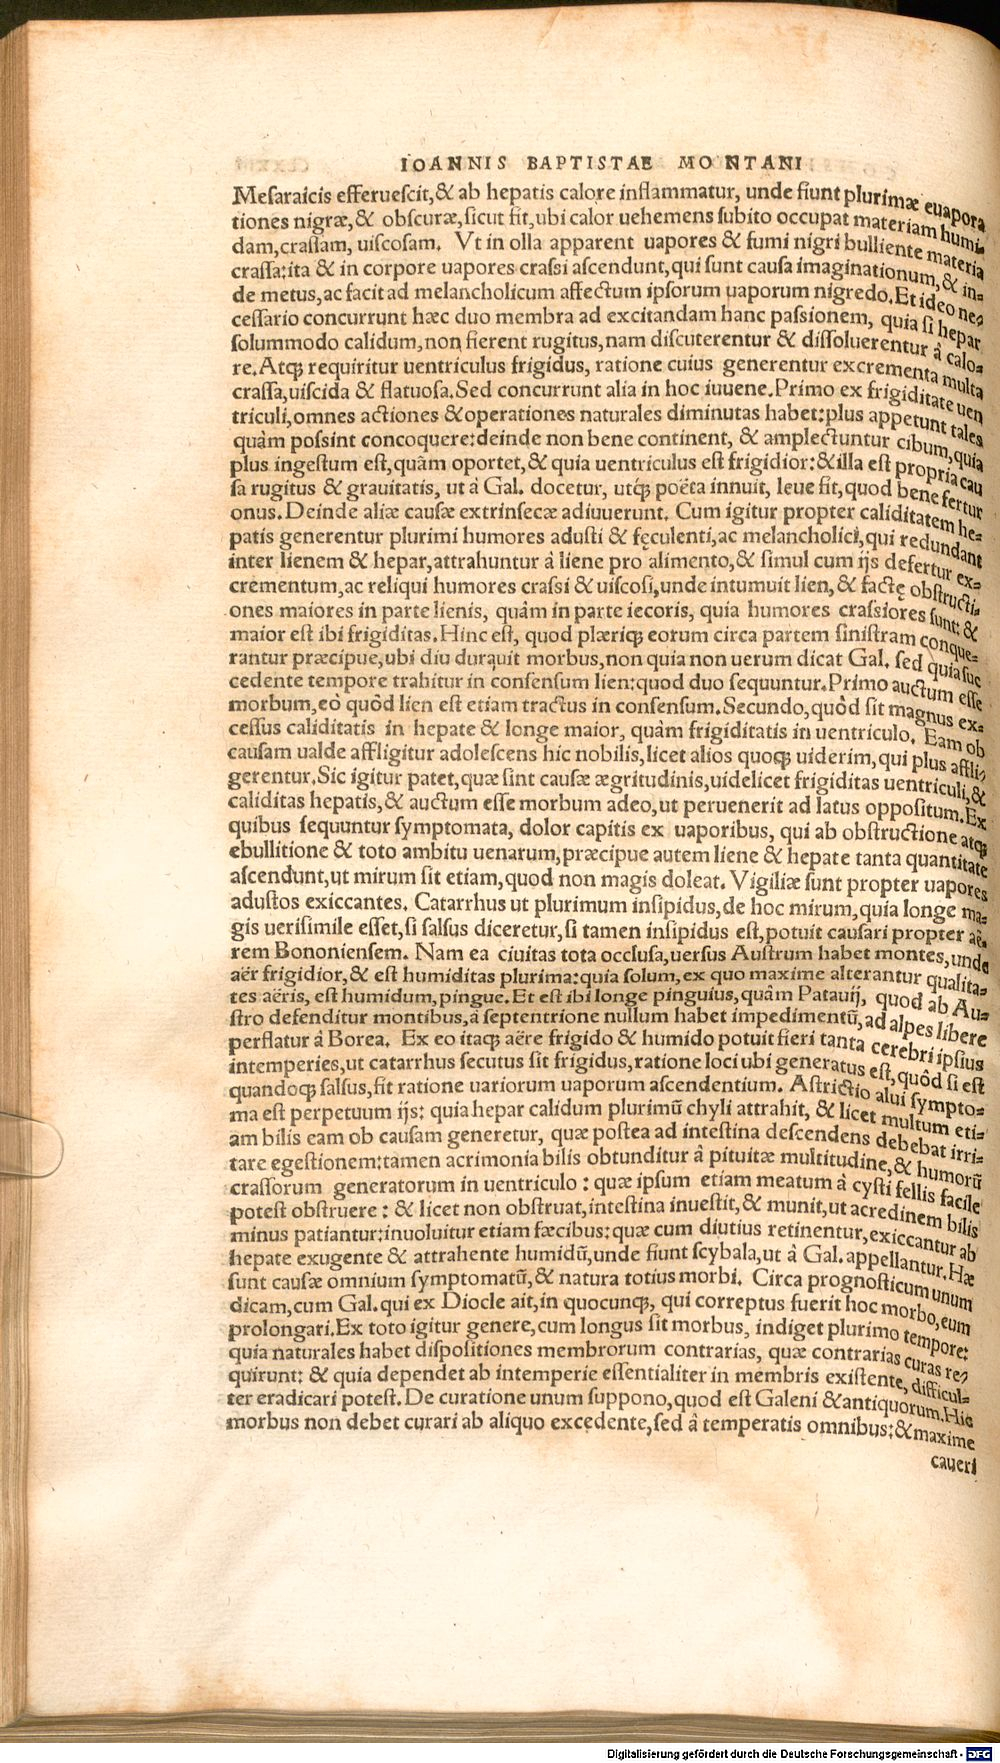 IOANNIS BAPTISTAE MONTANI
Mesaraicis efferuescit,& ab hepatis calore inflammatur, unde fiunt plurimæ euapora
tiones nigræ,& obscuræ,sicut fit,ubi calor uehemens subito occupat materiam humi-
dam,crassam, uiscosam. Vt in olla apparent uapores & fumi nigri bulliente materia
crassa:ita & in corpore uapores crassi ascendunt,qui sunt causa imaginationum,& in-
de metus,ac facit ad melancholicum affectum ipsorum uaporum nigredo.Et ideo ne-
cessario concurrunt hæc duo membra ad excitandam hanc passionem, quia si hepar
solummodo calidum,non fierent rugitus,nam discuterentur & dissoluerentur à calo-
re.Atq; requiritur uentriculus frigidus, ratione cuius generentur excrementa multa
crassa,uiscida & flatuosa.Sed concurrunt alia in hoc iuuene.Primo ex frigiditate uen
triculi,omnes actiones &operationes naturales diminutas habet:plus appetunt tales
quàm possint concoquere:deinde non bene continent, & amplectuntur cibum,quia
plus ingestum est,quâm oportet,& quia uentriculus est frigidior:&illa est propria cau
sa rugitus & grauitatis, ut à Gal. docetur, utq́; poëta innuit, leue fit,quod bene fertur
onus.Deinde aliæ causæ extrinsecæ adiuuerunt. Cum igitur propter caliditatem he-
patis generentur plurimi humores adusti & fęculenti,ac melancholici,qui redundant
inter lienem & hepar,attrahuntur à liene pro alimento,& simul cum ijs defertur ex-
crementum,ac reliqui humores crassi & uiscosi,unde intumuit lien,& factę obstructi-
ones maiores in parte lienis, quâm in parte iecoris, quia humores crassiores sunt: &
maior est ibi frigiditas.Hinc est, quod plæriq; eorum circa partem sinistram conque-
rantur præcipue,ubi diu durauit morbus,non quia non uerum dicat Gal. sed quia suc
cedente tempore trahitur in consensum lien:quod duo sequuntur.Primo auctum esse
morbum,eò quòd lien est etiam tractus in consensum.Secundo,quôd sit magnus ex-
cessus caliditatis in hepate & longe maior, quàm frigiditatis in uentriculo. Eam ob
causam ualde affligitur adolescens hic nobilis,licet alios quoq; uiderim,qui plus affli-
gerentur.Sic igitur patet,quæ sint causæ ægritudinis,uidelicet frigiditas uentriculi,&
caliditas hepatis,& auctum esse morbum adeo,ut peruenerit ad latus oppositum.Ex
quibus sequuntur symptomata, dolor capitis ex uaporibus, qui ab obstructione atq;
ebullitione & toto ambitu uenarum,præcipue autem liene & hepate tanta quantitate
ascendunt,ut mirum sit etiam,quod non magis doleat. Vigiliæ sunt propter uapores
adustos exiccantes. Catarrhus ut plurimum insipidus,de hoc mirum,quia longe ma-
gis uerisimile esset,si salsus diceretur,si tamen insipidus est,potuit causari propter aë-
rem Bononiensem. Nam ea ciuitas tota occlusa,uersus Austrum habet montes,unde
aër frigidior,& est humiditas plurima:quia solum,ex quo maxime alterantur qualita-
tes aëris, est humidum,pingue.Et est ibi longe pinguius,quâm Patauij, quod ab Au-
stro defenditur montibus,à septentrione nullum habet impedimentū,ad alpes libere
perflatur â Borea. Ex eo itaq; aëre frigido & humido potuit fieri tanta cerebri ipsius
intemperies,ut catarrhus secutus sit frigidus,ratione loci ubi generatus est,quôd si est
quandoq; salsus,fit ratione uariorum uaporum ascendentium. Astrictio alui sympto-
ma est perpetuum ijs: quia hepar calidum plurimū chyli attrahit, & licet multum eti-
am bilis eam ob causam generetur, quæ postea ad intestina descendens debebat irri-
tare egestionem:tamen acrimonia bilis obtunditur â pituitæ multitudine,& humorū
crassorum generatorum in uentriculo : quæ ipsum etiam meatum à cysti fellis facile
potest obstruere : & licet non obstruat,intestina inuestit,& munit,ut acredinem bilis
minus patiantur:inuoluitur etiam fæcibus:quæ cum diutius retinentur,exiccantur ab
hepate exugente & attrahente humidū,unde fiunt scybala,ut â Gal.appellantur.Hæ
sunt causæ omnium symptomatū,& natura totius morbi. Circa prognosticum unum
dicam,cum Gal.qui ex Diocle ait,in quocunq;, qui correptus fuerit hoc morbo,eum
prolongari.Ex toto igitur genere,cum longus sit morbus, indiget plurimo tempore:
quia naturales habet dispositiones membrorum contrarias, quæ contrarias curas re-
quirunt: & quia dependet ab intemperie essentialiter in membris existente, difficul-
ter eradicari potest.De curatione unum suppono,quod est Galeni &antiquorum.Hic
morbus non debet curari ab aliquo excedente,sed â temperatis omnibus:&maxime
caueri
Digitalisierung gefördert durch die Deutsche Forschungsgemeinschaft - DFG